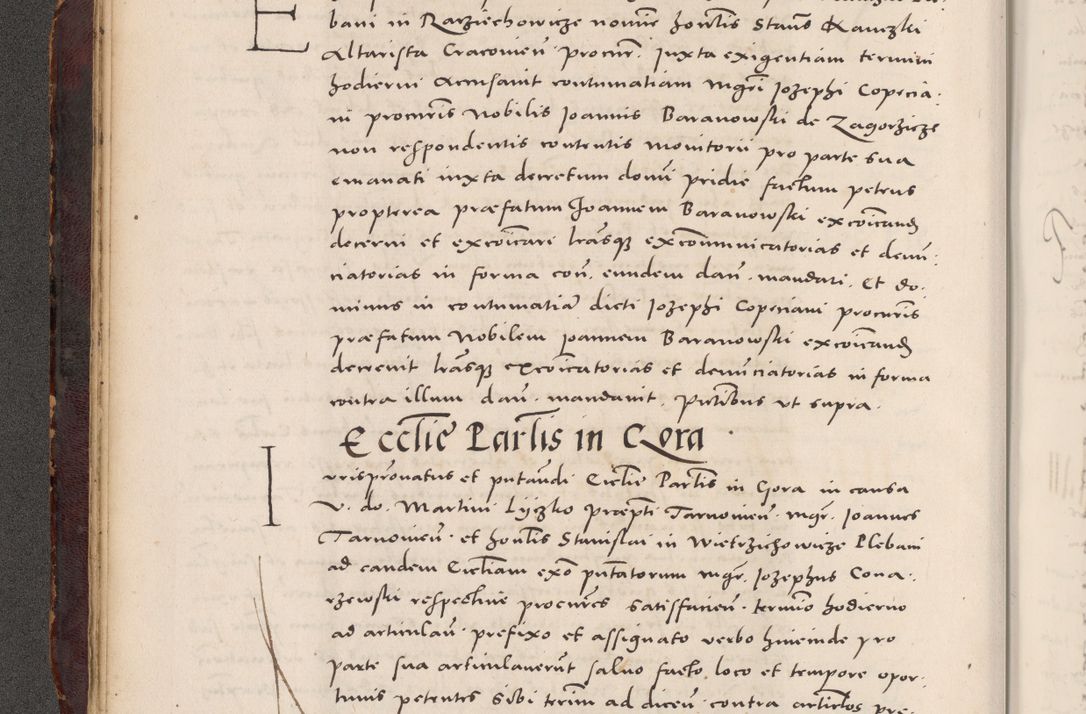 bani in Rarziechowicze nomine honlis Stans Kanczki
Altarista Cracovien. procur. Juxta exigentiam termini
hodierni Accusavit contumatiam mgri Jozephi Copecia:
ni procuris Nobilis Joannis Baranowski de Zagorzicze
non respondentis contentis monitorii pro parte sua
emanati iuxta decretum domi pridie factum petens
propterea præfatum Joannem Baranowski excoicand
decerni et excoicari lrasq excommunicatorias et denun:
ciatorias in forma con. eundem dan. mandari. Et do:
minus in contumatia dicti Jozephi Copeciani procuris
præfatum Nobilem Joannem Baranowski excoicand
decrevit lrasq excoicatorias et denunciatorias in forma
contra illum dan. mandavit. Pntibus ut supra.
Ecclie Parlis in Gora
Jurispronatus et pntandi Ecclie Parlis in Gora in causa
V. do. Martini Lyczko Præpti Tarnovien. mgr. Joannes
Tarnovien. et honlis Stanislai in Wietrzichowicze Plebani
ad eandem Eccliam exo pntatorum mgr. Jozephus Cona:
rzewski respective procures satisfacien. termio hodierno
ad articulan. prefixo et assignato verbo hincinde pro
parte sua articulaverunt salvo facto loco et tempore opor:
tunis petentes sibi terim ad dicen. contra articlos pre: